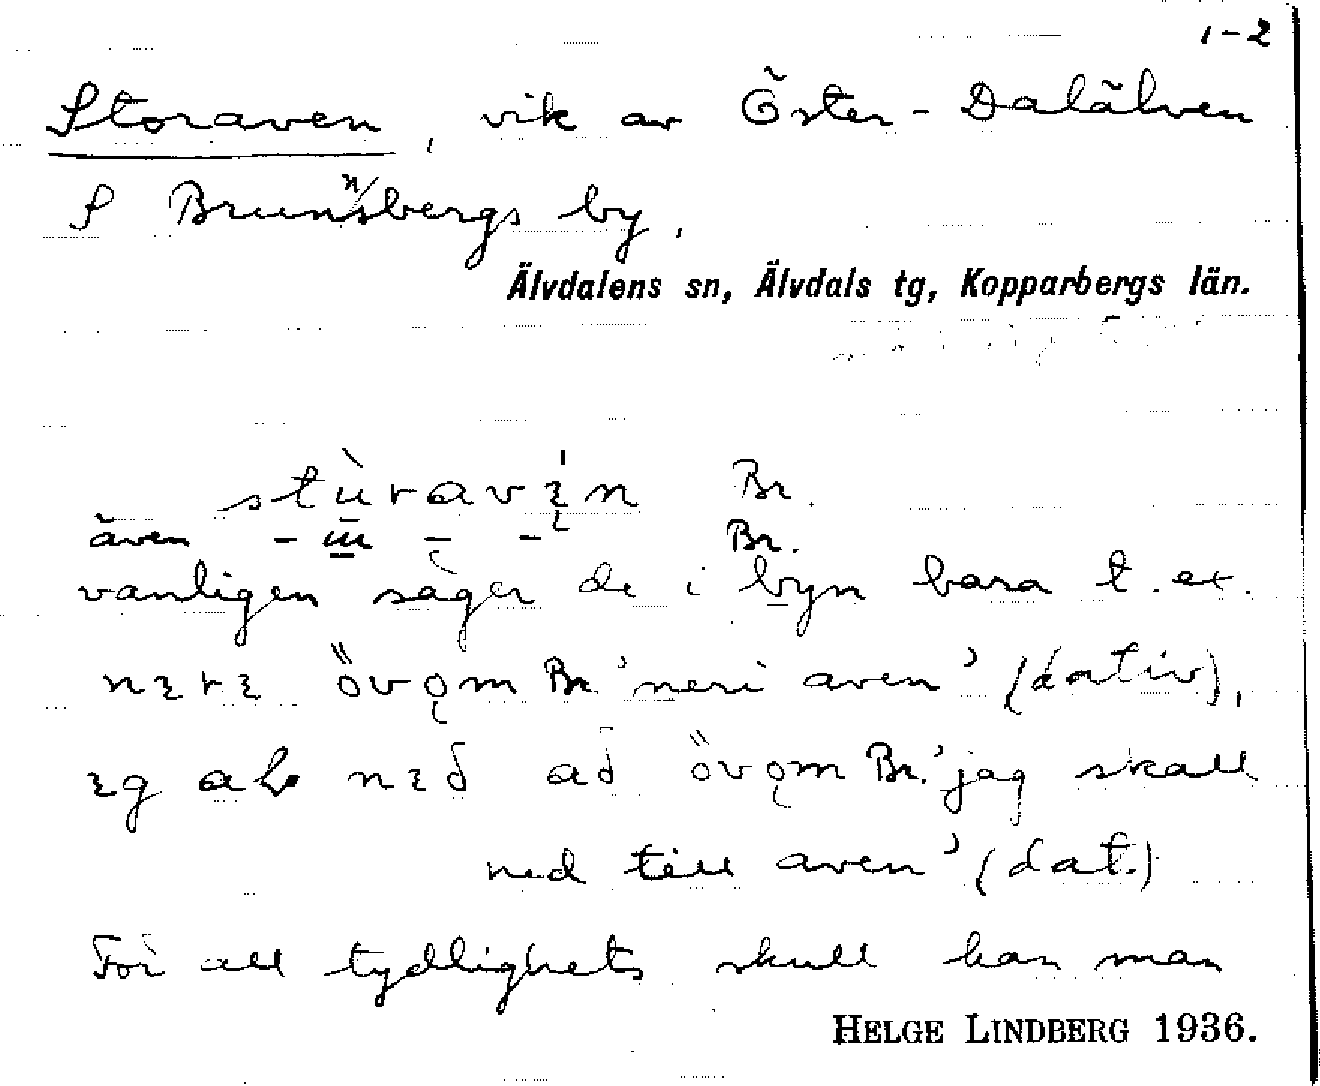 1-2
Storaven, vik av Öster-Dalälven
S Brunnsbergs by.
Älvdalens sn, Älvdals tg, Kopparbergs län.
Br.
även Br.
vanligen säger de i byn bara t. ex.
Br. 'neri aven' (dativ),
Br. 'jag skall
ned till aven' (dat.)
För all tydlighets skull kan man
HELGE LINDBERG 1936.